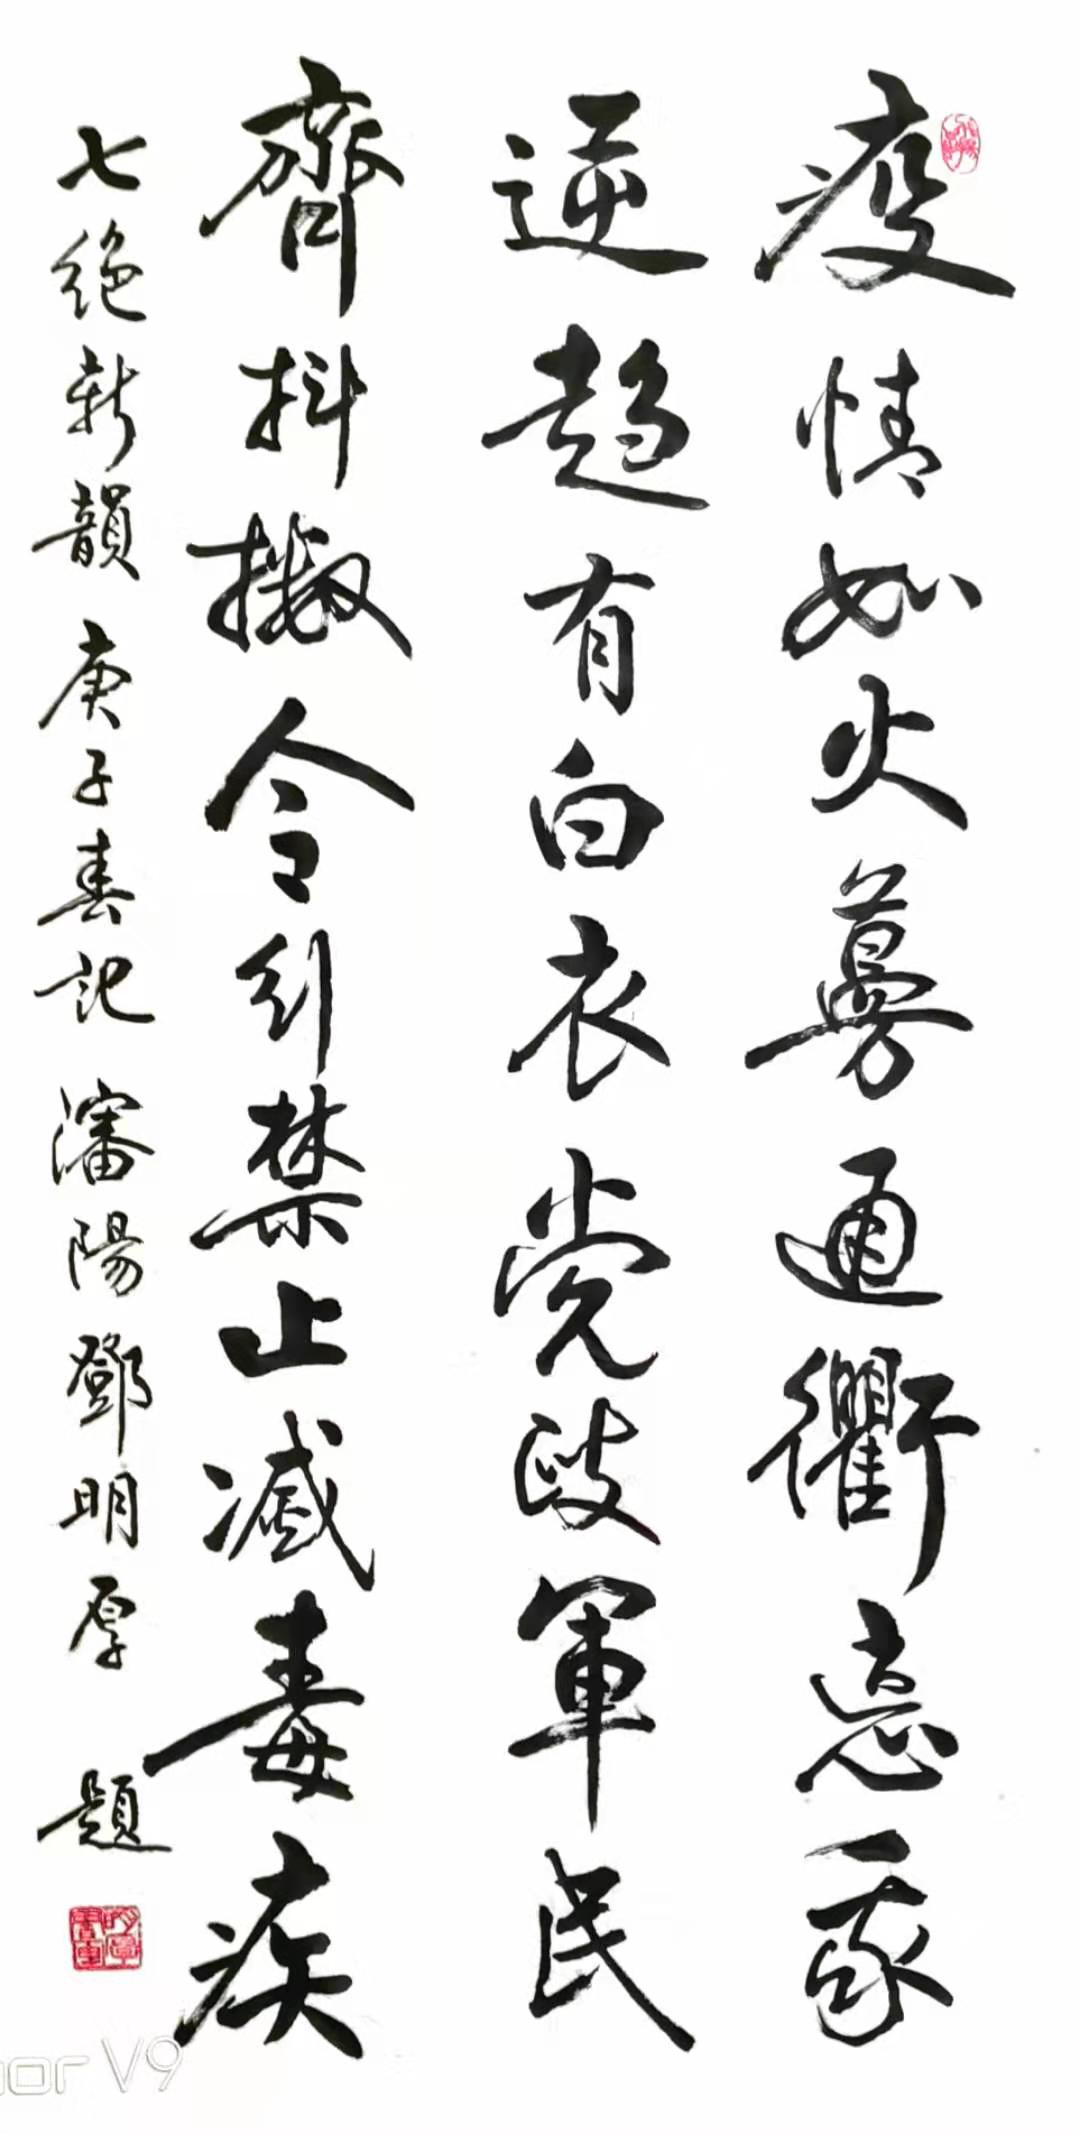 疫情如火蔓通衢
逆趋有白衣党政軍民
齊抖擞令行禁止滅毒疾
七絶新韻 庚子春記 瀋陽鄧明厚 題
V9